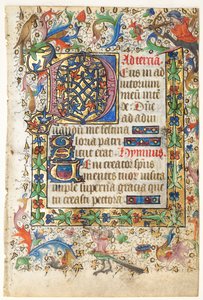 Ad terciã.
Eus in ad
iutorium
meũ inte
de. Dñe
ad adiu
uandũ me festina
Gloria patri
Sicut erat. Hymnus.
Eni creator spũs
mentes tuor. visita
imple superna gracia que
tu creasti pectora